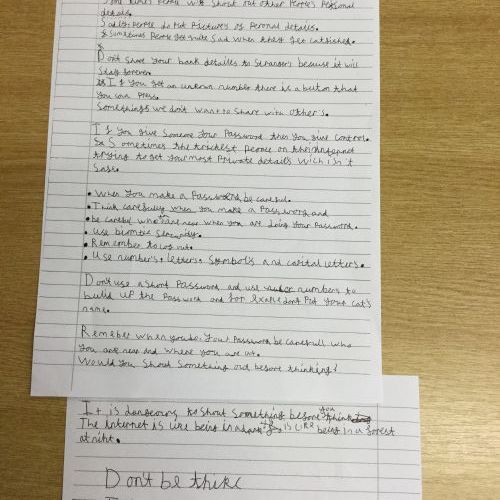 Some times People will shout out other People's Personal
details.
Sadley People do Put Pictures of Personal details.
Sometimes People get quite Sad when they get catfished.
Don't share your bank detailes to strangers because it will
stay forever.
If you get an unknown number there is a button that
you can Press.
Somethings we don't want to share with other's.
If you give someone your Password then you give control.
Sometimes the trickest People on the internet
trying to get your most Private details wich isn't
safe.
• When you make a Password be careful.
• Think carefully when you make a Password and
• be careful who is near when you are doing your Password.
• Use
• Remember to log out.
• Use number's + letters + Symbols and capital letters.
Don't use a short Password and use numbers to
build up the Password and for don't Put your cat's
name.
Remeber when you do your Password be carefull who
you are near and where you are at.
Would you Shout Something out before thinking?
It is dangerous to shout something before you think
The internet is like being in a dark it is like being in a forest
at night.
Don't be